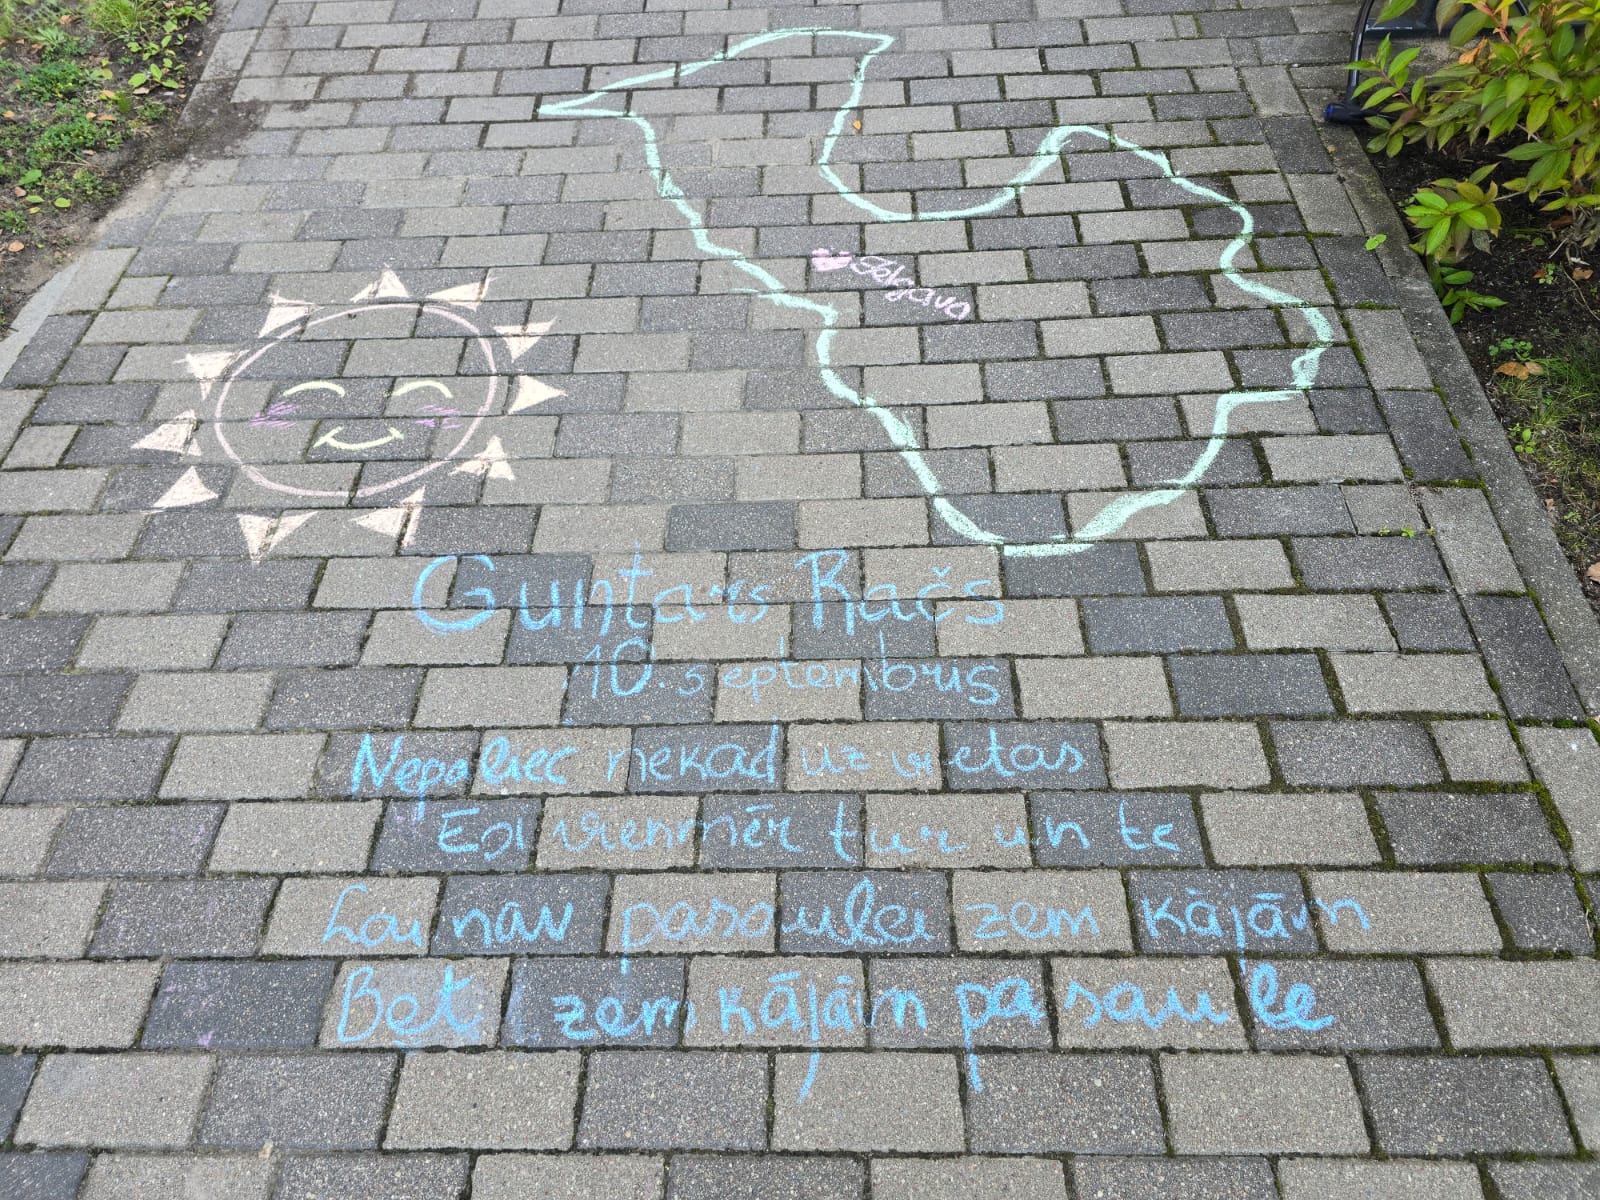 Jelgava
Guntars Račs
10. septembris
Nepaliec nekad uz vietas
Ej vienmēr tur un te
Lai nav pasaulei zem kājām
Bet zem kājām pasaule